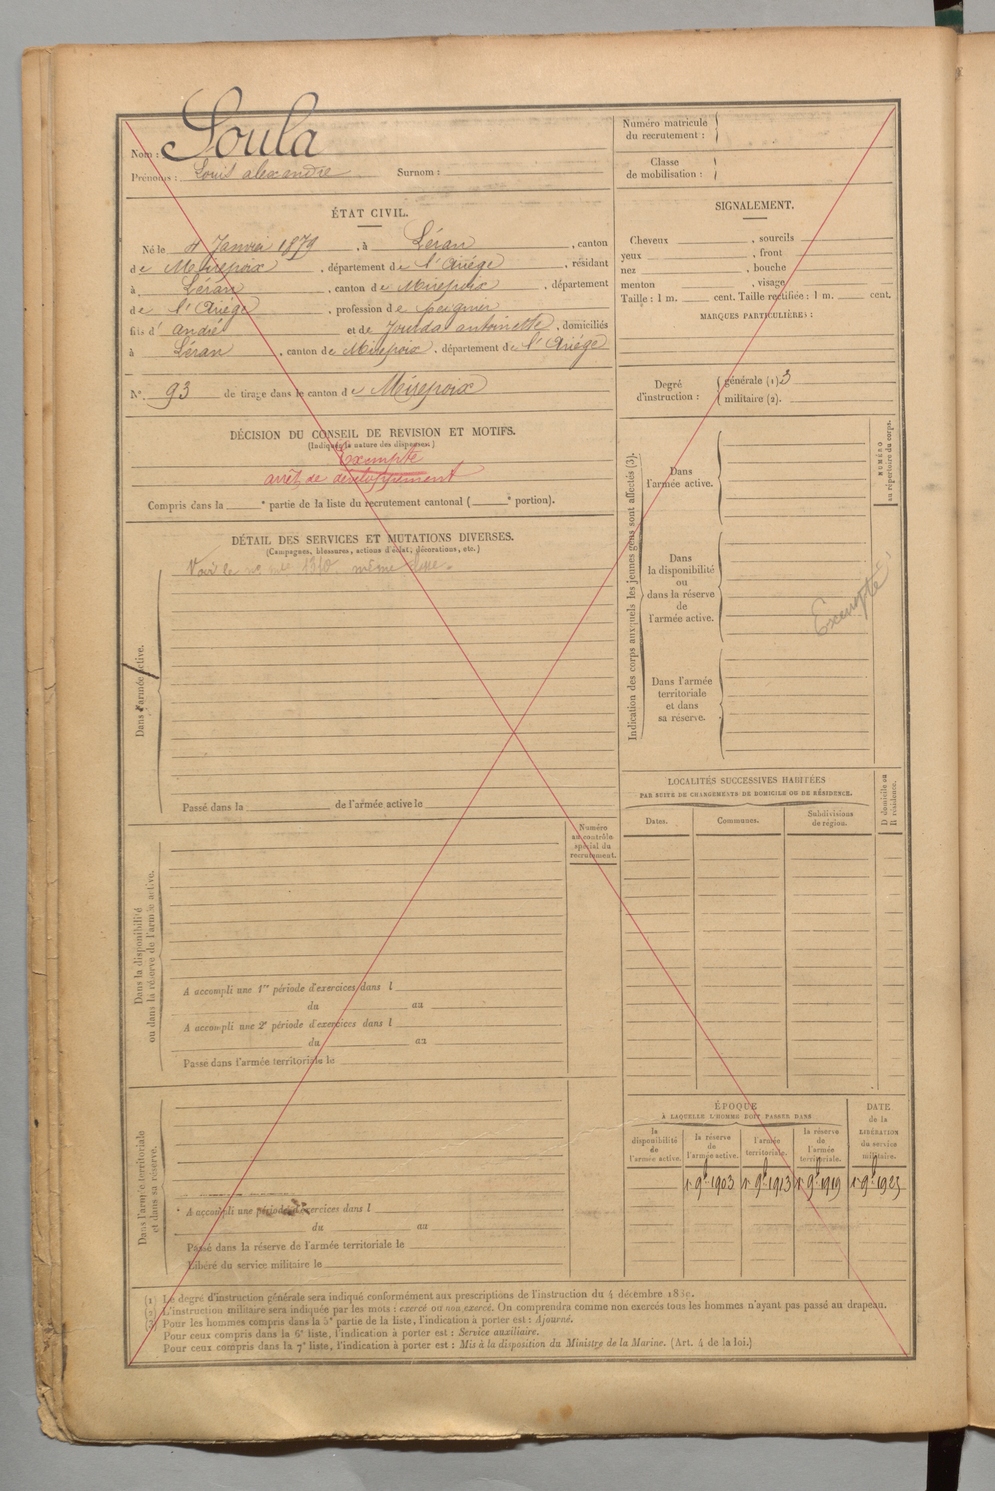 Nom : Soula
Prénoms : Louis alexandre Surnom :
ÉTAT CIVIL.
Né le 4 Janvier 1879, à Léran, canton
de Mirepoix, département de l'Ariége, résidant
à Léran, canton de Mirepoix, département
de l'Ariége, profession de peignier
fils d' andré et de Jourda antoinette, domiciliés
à Léran, canton de Mirepoix, département de l'Ariége
N° 93 de tirage dans le canton de Mirepoix
DÉCISION DU CONSEIL DE REVISION ET MOTIFS.
(Indiquer la nature des dispenses.)
Exempté
arrêt de développement
Compris dans la e partie de la liste du recrutement cantonal ( e portion).
DÉTAIL DES SERVICES ET MUTATIONS DIVERSES.
(Campagnes, blessures, actions d'éclat, décorations, etc.)
Voir le n° mle 1310 même
Dans l'armée active.
Passé dans la de l'armée active le
Numéro
au contrôle
spécial du
recrutement.
Dans la disponibilité
ou dans la réserve de l'armée active.
A accompli une 1re période d'exercices dans l
du au
A accompli une 2e période d'exercices dans l
du au
Passé dans l'armée territoriale le
Dans l'armée territoriale
et dans sa réserve.
A accompli une période d'exercices dans l
du au
Passé dans la réserve de l'armée territoriale le
Libéré du service militaire le
Numéro matricule
du recrutement :
Classe
de mobilisation :
SIGNALEMENT.
Cheveux , sourcils
yeux , front
nez , bouche
menton , visage
Taille : 1 m. cent. Taille rectifiée : 1 m. cent.
MARQUES PARTICULIÈRES :
Degré
d'instruction :
générale (1) 3
militaire (2).
Indication des corps auxquels les jeunes gens sont affectés (3).
Dans
l'armée active.
NUMÉRO
au répertoire du corps.
Dans
la disponibilité
ou
dans la réserve
de
l'armée active.
Exempté
Dans l'armée
territoriale
et dans
sa réserve.
LOCALITÉS SUCCESSIVES HABITÉES
PAR SUITE DE CHANGEMENTS DE DOMICILE OU DE RÉSIDENCE.
Dates.
Communes.
Subdivisions
de région.
D domicile ou
R résidence.
ÉPOQUE
À LAQUELLE L'HOMME DOIT PASSER DANS
DATE
de la
LIBÉRATION
du service
militaire.
la
disponibilité
de
l'armée active.
la réserve
de
l'armée active.
l'armée
territoriale.
la réserve
de
l'armée
territoriale.
1er 9bre 1903 1er 9bre 1913 1er 9bre 1919 1er 9bre 1925
(1) Le degré d'instruction générale sera indiqué conformément aux prescriptions de l'instruction du 4 décembre 1889.
(2) L'instruction militaire sera indiquée par les mots : exercé ou non exercé. On comprendra comme non exercés tous les hommes n'ayant pas passé au drapeau.
(3) Pour les hommes compris dans la 5e partie de la liste, l'indication à porter est : Ajourné.
Pour ceux compris dans la 6e liste, l'indication à porter est : Service auxiliaire.
Pour ceux compris dans la 7e liste, l'indication à porter est : Mis à la disposition du Ministre de la Marine. (Art. 4 de la loi.)